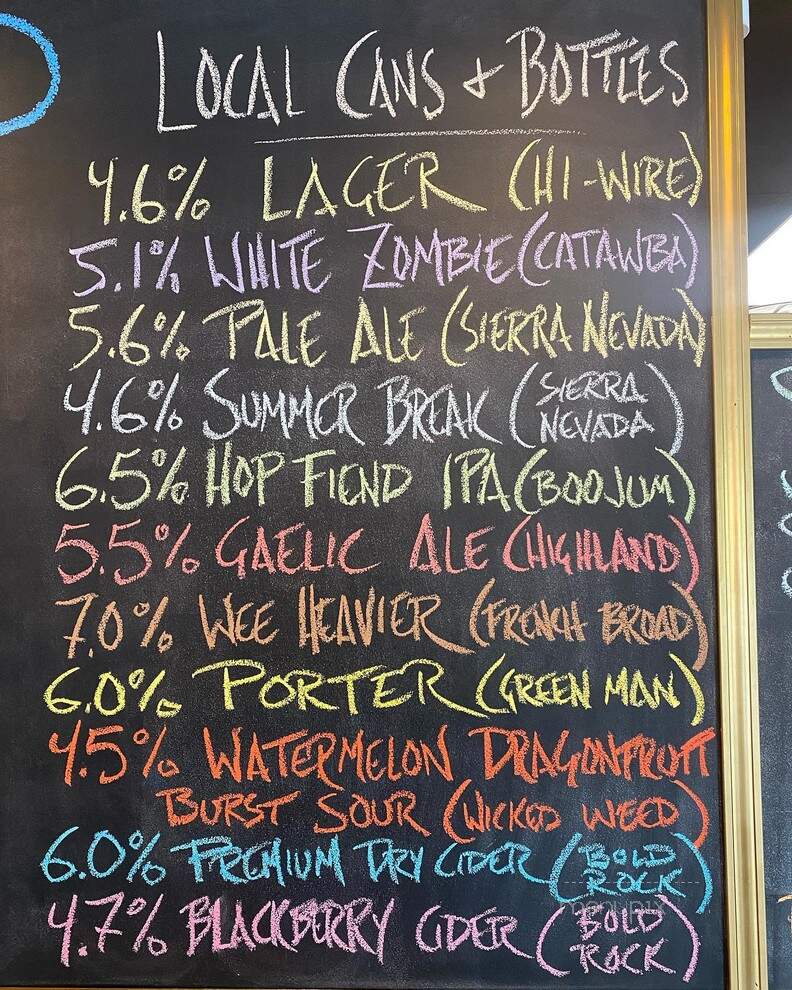 LOCAL CANS + BOTTLES
4.6% LAGER (HI-WIRE)
5.1% WHITE ZOMBIE (CATAWBA)
5.6% PALE ALE (SIERRA NEVADA)
4.6% SUMMER BREAK (SIERRA NEVADA)
6.5% HOP FIEND IPA (BOOJUM)
5.5% GAELIC ALE (HIGHLAND)
7.0% WEE HEAVIER (FRENCH BROAD)
6.0% PORTER (GREEN MAN)
4.5% WATERMELON DRAGONFRUIT
BURST SOUR (WICKED WEED)
6.0% PREMIUM DRY CIDER (BOLD ROCK)
4.7% BLACKBERRY CIDER (BOLD ROCK)
menupix